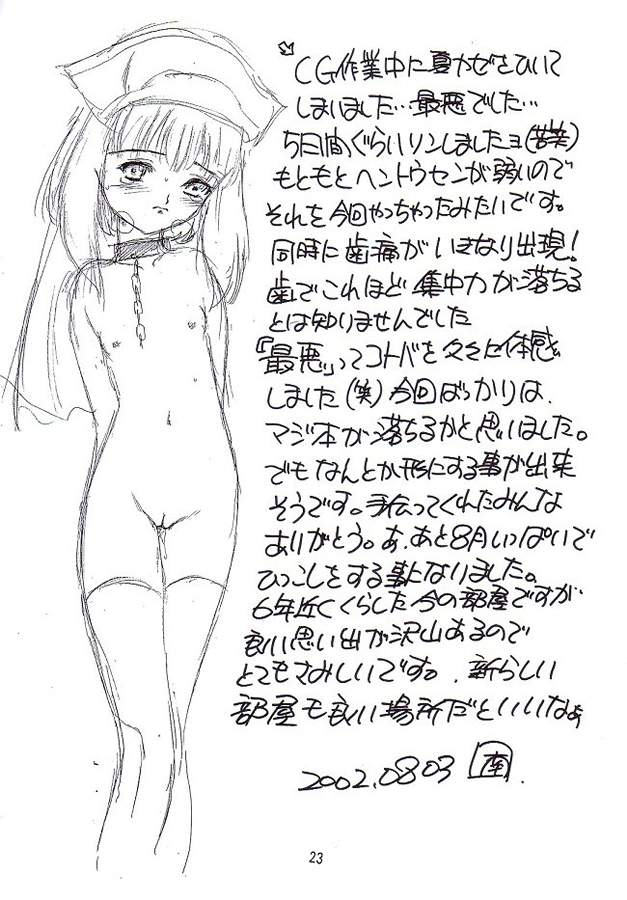 CG作業中に夏かぜをひいて
しまいました…最悪でした…
5日間ぐらいリンしましたヨ(苦笑)
もともとヘントウセンが弱いので
それを今回やっちゃったみたいです。
同時に歯痛がいきなり出現!
歯でこれほど集中力が落ちる
とは知りませんでした
『最悪』ってコトバを久々に体感
しました(笑)今回ばっかりは、
マジ本が落ちるかと思いました。
でもなんとか形にする事が出来
そうです。手伝ってくれたみんな
ありがとう。あ、あと8月いっぱいで
ひっこしをする事になりました。
6年近くくらした今の部屋ですが
良い思い出が沢山あるので
とてもさみしいです。新らしい
部屋も良い場所だといいなぁ
2002.0803
23